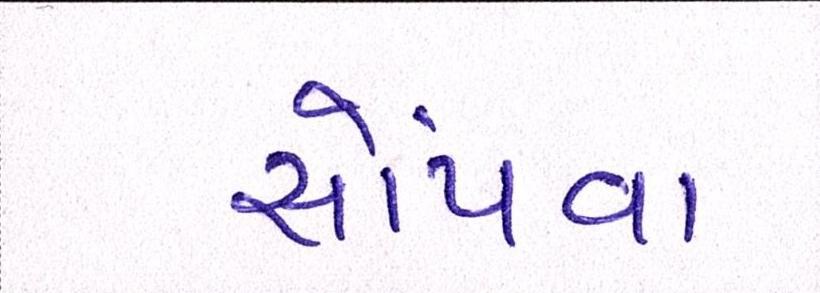 સોંપવા